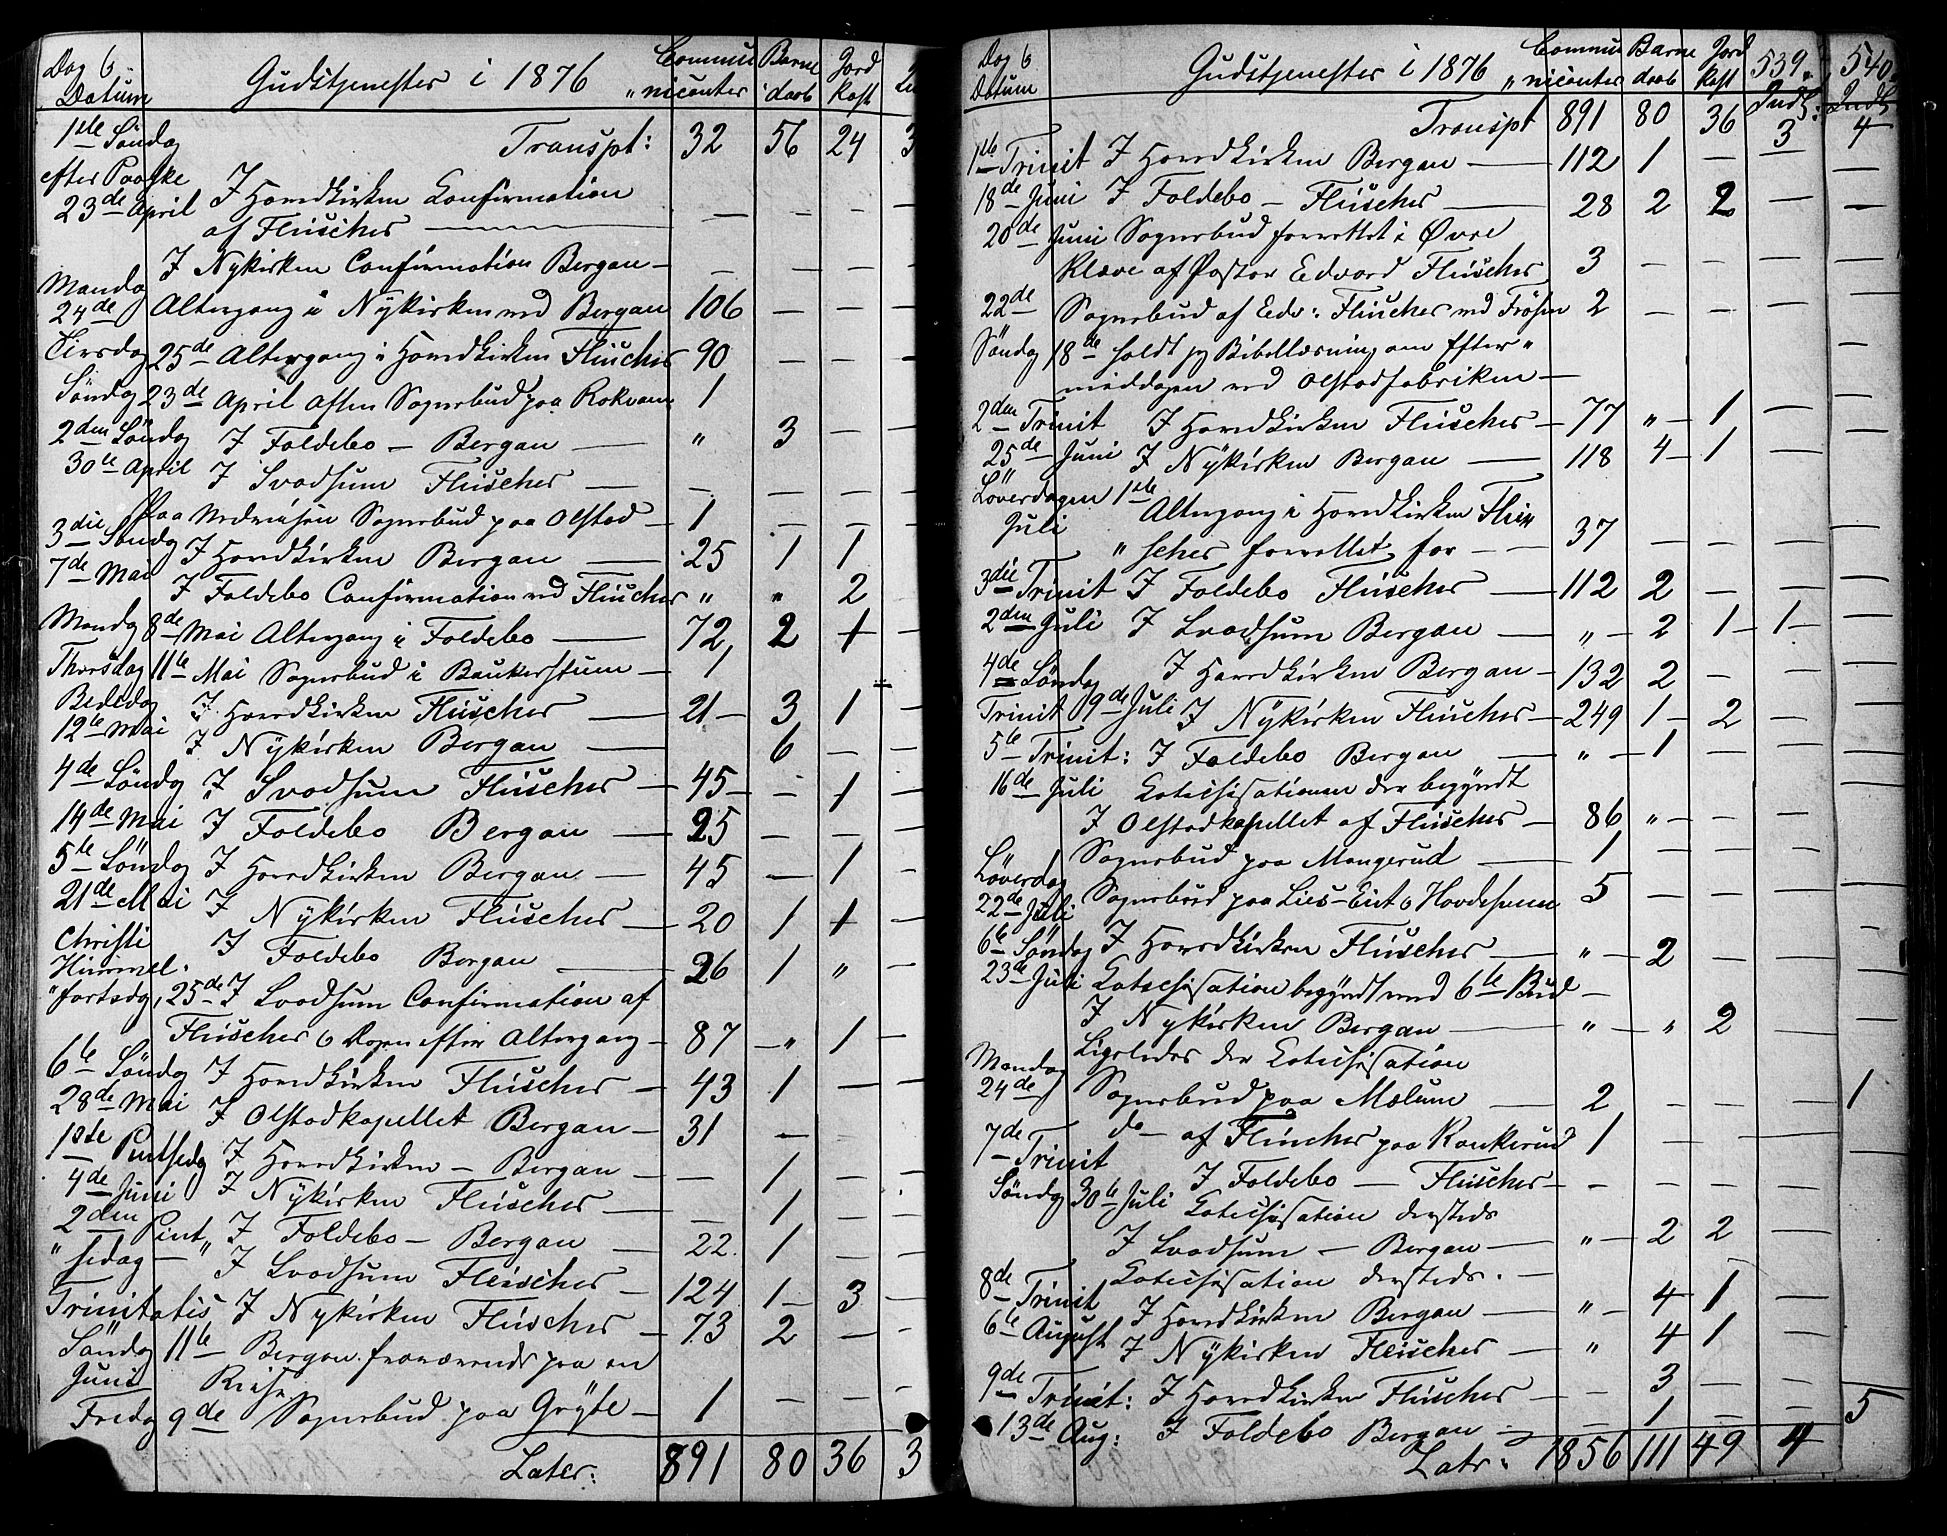 Dag &
Datum
Gudstjenester i 1876
Commu
„nicanter
Barne
daab
Jord
kast
1ste Söndag Transpt: 32 56 24 3
efter Paaske
23de April I Hovedkirken Confirmation
af Fleischer — — — — —
I Nykirken Confirmation Bergan — — — — —
Mandag
24de Altergang i Nykirken ved Bergan 106 — — —
Tirsdag 25de Altergang i Hovedkirken Fleischer 90 — — —
Söndag 23de April Aften Sognebud paa 1
2den Söndag I Foldebo — Bergan — „ 3 — —
30te April I Svodsum Fleischer — — — — —
Paa Sognebud paa Olstad — 1 — — —
3die Söndag I Hovedkirken Bergan — 25 1 1
7de Mai
I Foldebo Confirmation ved Fleischer „ „ 2
Mandag 8de Mai Altergang i Foldebo — 72 2 1 —
Thorsdag 11te Mai Sognebud i Baukerstuen — 1
Bededag I Hovedkirken Fleischer — 21 — 3 1 —
12te Mai I Nykirken Bergan — 6 — —
4de Söndag I Svodsum Fleischer — 45 — — 1 —
14de Mai I Foldebo Bergan — 25 — — —
5te Söndag I Hovedkirken Bergan — 45 — 1 —
21de Mai I Nykirken Fleischer — 20 1 1 —
Christi
Himmel- I Foldebo Bergan — 26 1 „ —
„fartsdg, 25de I Svodsum Confirmation af
Fleischer & Dagen efter Altergang — 87 — „ 1 —
6te Söndag I Hovedkirken Fleischer — 43 1 — —
28de Mai I Olstadkapellet Bergan — 31 —
1ste Pintsedg I Hovedkirken — Bergan — — 1 — —
4de Juni I Nykirken Fleischer — — 1 — —
2den Pint„ I Foldebo — Bergan — 22. 1 —
„sedag — „ I Svodsum Fleischer — 124 1 — 3 —
Trinitatis I Nykirken Fleischer — 73 2 — —
Söndag 11te Bergan fraværende paa en
Juni Reise
Fredag 9de Sognebud paa Gryte — 1 — — —
Later: 891 80 36 3
Dag &
Datum
Gudstjenester i 1876
Commu
„nicanter
Barne
daab
Jord
kast
539.
Indl:
540.
Indl
Transpt 891 80 36 3 4
1ste Trinit I Hovedkirken Bergan — 112 1 — — —
18de Juni I Foldebo — Fleischer — 28 2 2 — —
20de Juni Sognebud forrettet i Øvre
Kleve af Pastor Edvard Fleischer 3 — — — —
22de Sognebud af Edv: Fleischer ved Frösen 2 — — — —
Söndag 18de holdt jeg Bibellæsning om Efter„
middagen ved Olstadfabriken —
2den Trinit I Hovedkirken Fleischer — 77 „ — 1 — —
25de Juni I Nykirken Bergan — 118 4 — 1 — —
Löverdagen 1ste Altergang i Hovedkirken Flei„
Juli „scher forrettet for — — 37 — — — —
3die Trinit I Foldebo Fleischer — 112 2 — — —
2den Juli I Svodsum Bergan — „ — 2 1 — 1 — —
4de Söndag I Hovedkirken Bergan — 132 2 — — —
Trinit 9de Juli I Nykirken Fleischer — 249 1 — 2 — —
5te Trinit: I Foldebo Bergan — „ — 1 — — —
16de Juli Catechisationen der begyndt
I Olstadkapellet af Fleischer — 86 „ — — — —
Löverdag Sognebud paa Mangerud — 1 — — — —
22de Juli Sognebud paa Lies-Eiet & 5 — — — —
6te Söndag I Hovedkirken Fleischer — „ — 2 — — —
23de Juli Catechisation begyndt med 6te Bud —
I Nykirken Bergan — „ — „ 2 — —
Ligeledes der Catechisation
Mandag
24de Sognebud paa Mælum — 2 — — — 1
do — af Fleischer paa Kankerud 1 — — — —
7de Trinit I Foldebo — Fleischer — — — — — —
Söndg 30te Juli Catechisation dersteds
I Svodsum — Bergan — „ — 2 2 — —
8de Trinit Catechisation dersteds. —
6te August I Hovedkirken Bergan — „ — 4 1 — —
I Nykirken Fleischer — „ 4 1 — —
9de Trinit: I Hovedkirken Fleischer — — 3 — — —
13de Aug: I Foldebo Bergan — — 1 — — 5
Latr: 1856 111 49 4